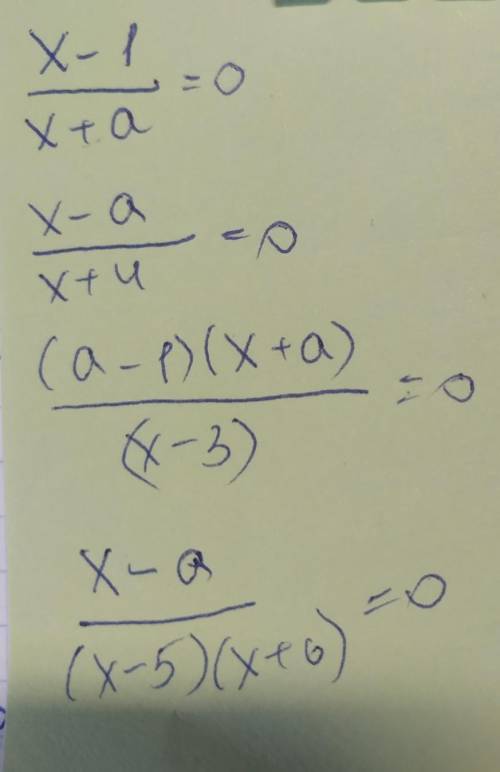 x-1
x+a
=0
x-a
x+4
=0
(a-1)(x+a)
(x-3)
=0
x-a
(x-5)(x+6)
=0